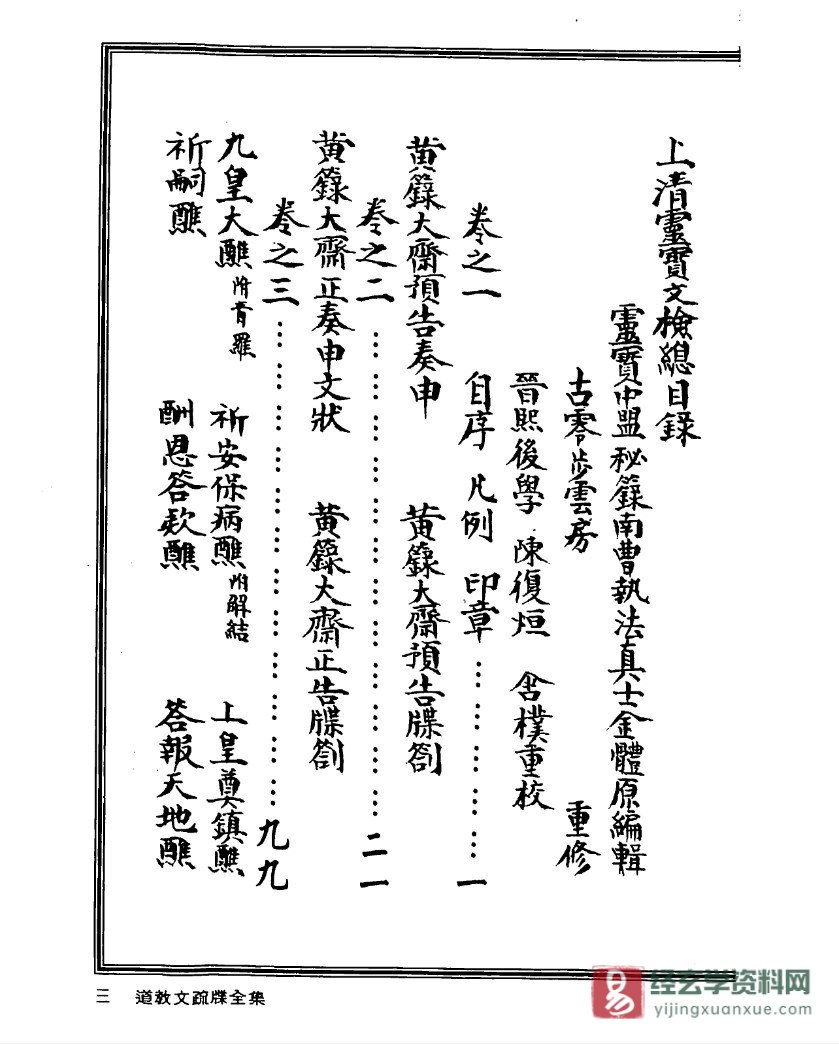 上清靈寶文檢總目錄
靈寶中盟秘籙南曹執法真士金體原編輯
古零步雲房 重修
晉熙後學 陳復烜 含樸重校
卷之一 自序 凡例 印章………………一
黄籙大齋預告奏申 黄籙大齋預告牒劄
卷之二………………二一
黄籙大齋正奏申文狀 黄籙大齋正告牒劄
卷之三………………九九
九皇大醮附青羅 祈安保病醮附解結 上皇奠鎮醮
祈嗣醮 酬恩答款醮 答報天地醮
三 道教文疏牒全集
易 经玄学资料网
yijingxuanxue.com